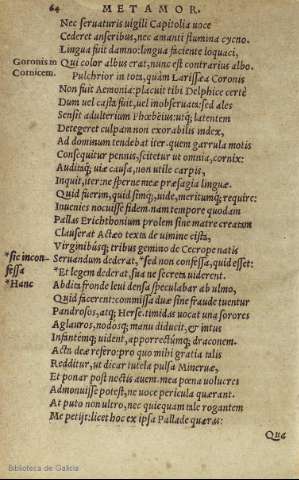 64 METAMOR.
Nec seruaturis uigili Capitolia uoce
Cederet anseribus, nec amanti flumina cycno.
Lingua fuit damno: lingua faciente loquaci,
Coronis in Cornicem.
Qui color albus erat, nunc est contrarius albo.
Pulchrior in tota, quàm Larissæa Coronis
Non fuit Aemonia: placuit tibi Delphice certè
Dum uel casta fuit, uel inobseruata: sed ales
Sensit adulterium Phœbeius: utq; latentem
Detegeret culpam non exorabilis index,
Ad dominum tendebat iter. quem garrula motis
Consequitur pennis, scitetur ut omnia, cornix:
Auditaq; uiæ causa, non utile carpis,
Inquit, iter: ne sperne meæ præsagia linguæ.
Quid fuerim, quid simq;, uide, meritumq; require:
Inuenies nocuisse fidem. nam tempore quodam
Pallas Erichthonium prolem sine matre creatam
Clauserat Actæo texta de uimine cista,
Virginibúsq; tribus gemino de Cecrope natis
*sic inconfessa
Seruandum dederat, *sed non confessa, quid esset:
*Hanc
*Et legem dederat, sua ne secreta uiderent.
Abdita fronde leui densa speculabar ab ulmo,
Quid facerent: commissa duæ sine fraude tuentur
Pandrosos, atq; Herse. timidas uocat una sorores
Aglauros, nodosq; manu diducit, & intus
Infantemq; uident, apporrectumq; draconem.
Acta deæ refero: pro quo mihi gratia talis
Redditur, ut dicar tutela pulsa Mineruæ,
Et ponar post noctis auem. mea pœna uolucres
Admonuisse potest, ne uoce pericula quærant.
At puto non ultro, nec quicquam tale rogantem
Me petijt: licet hoc ex ipsa Pallade quæras:
Qua
Biblioteca de Galicia